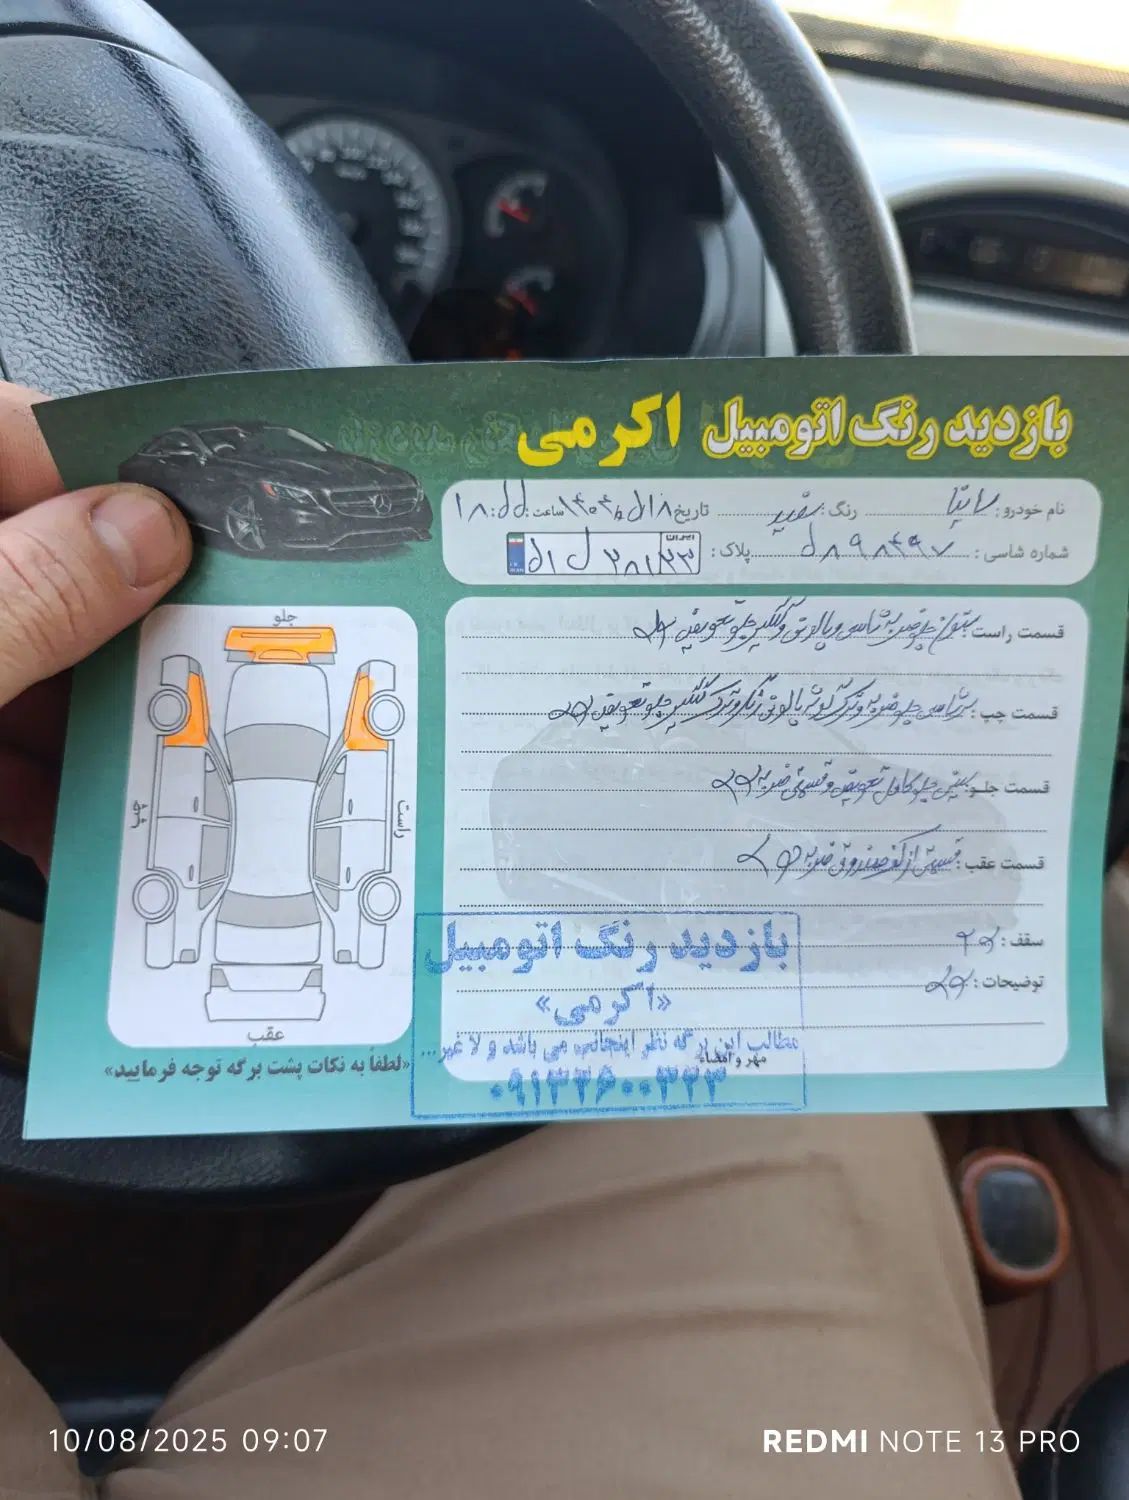 بازدید رنگ اتومبیل اکرمی
نام خودرو: ساینا رنگ: سفید تاریخ ۱۴۰۴/۵/۱۸ ساعت: ۱۸:۵۵
شماره شاسی: ۵۸۹۸۴۹۷ پلاک:
ایران
قسمت راست: ستون جلو ضربه شاسی و پالونی و گلگیر جلو تعویض
قسمت چپ: سرشاسی جلو ضربه و ترک گلگیر جلو تعویض
قسمت جلو: سینی جلو کامل تعویض و قسمتی ضربه
قسمت عقب: قسمتی از کف صندوق ضربه
سقف:
توضیحات:
مهر و امضاء
جلو
چپ
راست
عقب
«لطفاً به نکات پشت برگه توجه فرمایید»
بازدید رنگ اتومبیل
«اکرمی»
مطالب این برگه نظر اینجانب می باشد و لا غیر...
۰۹۱۳۲۶۰۰۳۲۳
10/08/2025 09:07
REDMI NOTE 13 PRO